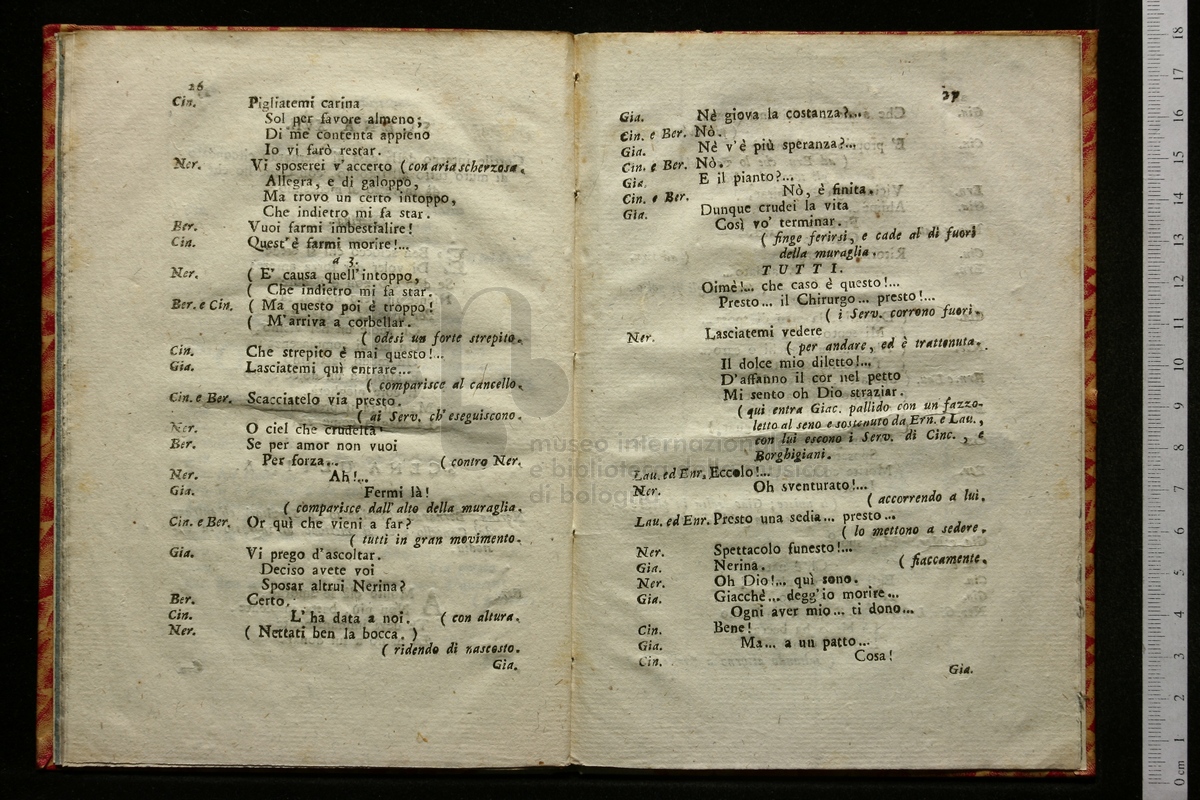 26
Cin. Pigliatemi carina
Sol per favore almeno;
Di me contenta appieno
Io vi farò restar.
Ner. Vi sposerei v'accerto (con aria scherzosa.
Allegra, e di galoppo,
Ma trovo un certo intoppo,
Che indietro mi fa star.
Ber. Vuoi farmi imbestialire!
Cin. Quest'è farmi morire!...
a 3.
Ner. ( E' causa quell'intoppo,
( Che indietro mi fa star.
Ber. e Cin. ( Ma questo poi è troppo!
( M'arriva a corbellar.
( odesi un forte strepito.
Cin. Che strepito è mai questo!...
Gia. Lasciatemi quì entrare...
( comparisce al cancello.
Cin. e Ber. Scacciatelo via presto.
( ai Serv. ch'eseguiscono.
Ner. O ciel che crudeltà
Ber. Se per amor non vuoi
Per forza... ( contro Ner.
Ner. Ah!...
Gia. Fermi là!
( comparisce dall'alto della muraglia.
Cin. e Ber. Or quì che vieni a far?
( tutti in gran movimento.
Gia. Vi prego d'ascoltar.
Deciso avete voi
Sposar altrui Nerina?
Ber. Certo.
Cin. L'ha data a noi. ( con altura.
Ner. ( Nettati ben la bocca. )
( ridendo di nascosto.
Gia.
27
Gia. Nè giova la costanza?...
Cin. e Ber. Nò.
Gia. Nè v'è più speranza?...
Cin. e Ber. Nò.
Gia. E il pianto?...
Cin. e Ber. Nò, è finita.
Gia. Dunque crudei la vita
Così vo' terminar.
( finge ferirsi, e cade al di fuori
della muraglia.
TUTTI.
Oimè!... che caso è questo!...
Presto... il Chirurgo... presto!...
( i Serv. corrono fuori.
Ner. Lasciatemi vedere
( per andare, ed è trattenuta.
Il dolce mio diletto!...
D'affanno il cor nel petto
Mi sento oh Dio straziar.
( qui entra Giac. pallido con un fazzo-
letto al seno e sostenuto da Ern. e Lau.,
con lui escono i Serv. di Cinc., e
Borghigiani.
Lau. ed Enr. Eccolo!...
Ner. Oh sventurato!...
( accorrendo a lui.
Lau. ed Enr. Presto una sedia... presto...
( lo mettono a sedere.
Ner. Spettacolo funesto!...
Gia. Nerina. ( fiaccamente.
Ner. Oh Dio!... quì sono.
Gia. Giacchè... degg'io morire...
Ogni aver mio... ti dono...
Cin. Bene!
Gia. Ma... a un patto...
Cin. Cosa!
Gia.